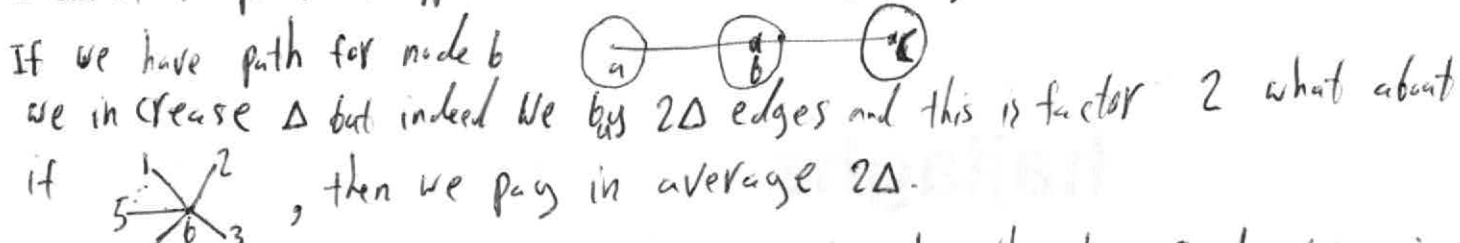 If we have path for node b a b c
we increase Δ but indeed we buy 2Δ edges and this is factor 2 what about
if 1 2 3 5 6 , then we pay in average 2Δ.